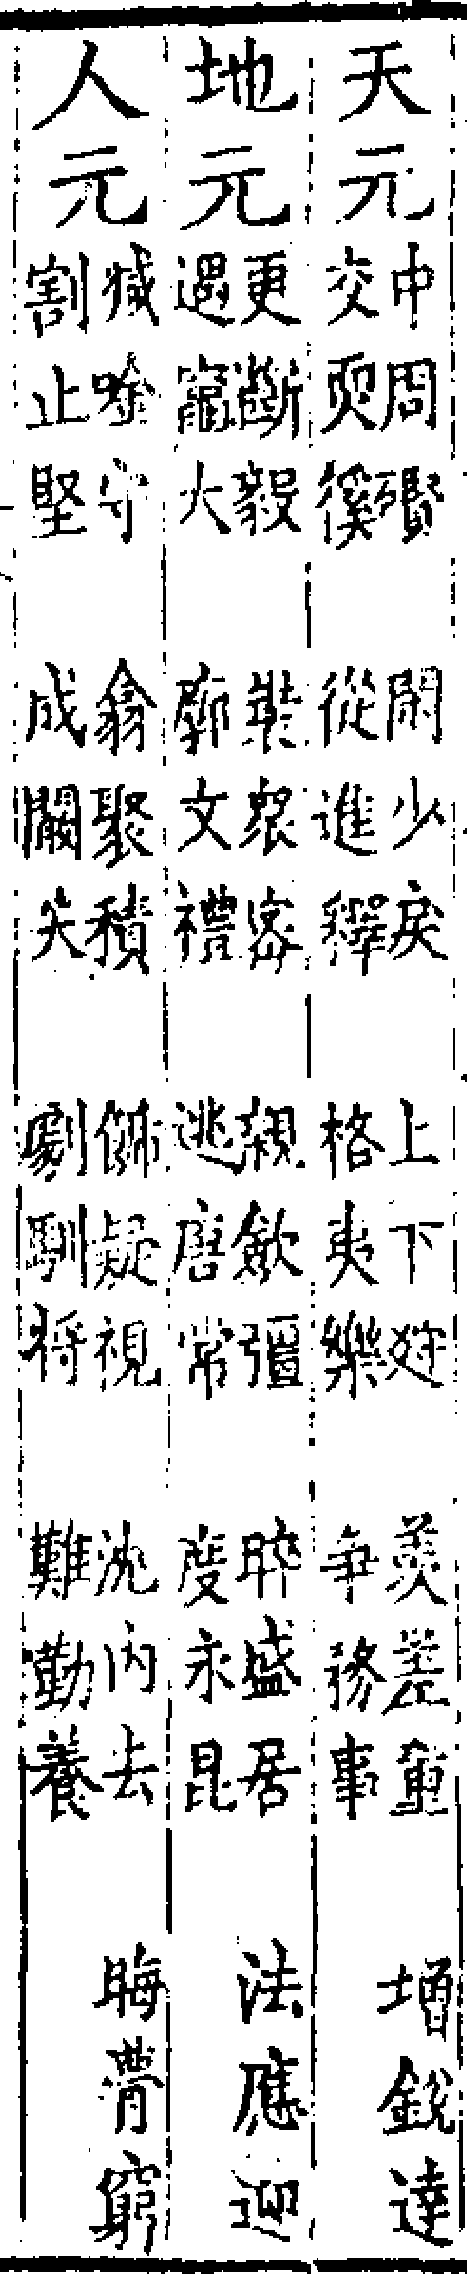 天元
中周礥 閑少戾 上下 羨差童 增銳達
交耎徯 從進釋 格夷樂 爭務事
地元
更斷毅 裝衆密 親斂彊 睟盛居 法應迎
遇竈大 廓文禮 逃唐常 度永昆
人元
減唫守 翕聚積 飾疑視 沈內去 晦瞢窮
割止堅 成闕失 劇馴將 難勤養